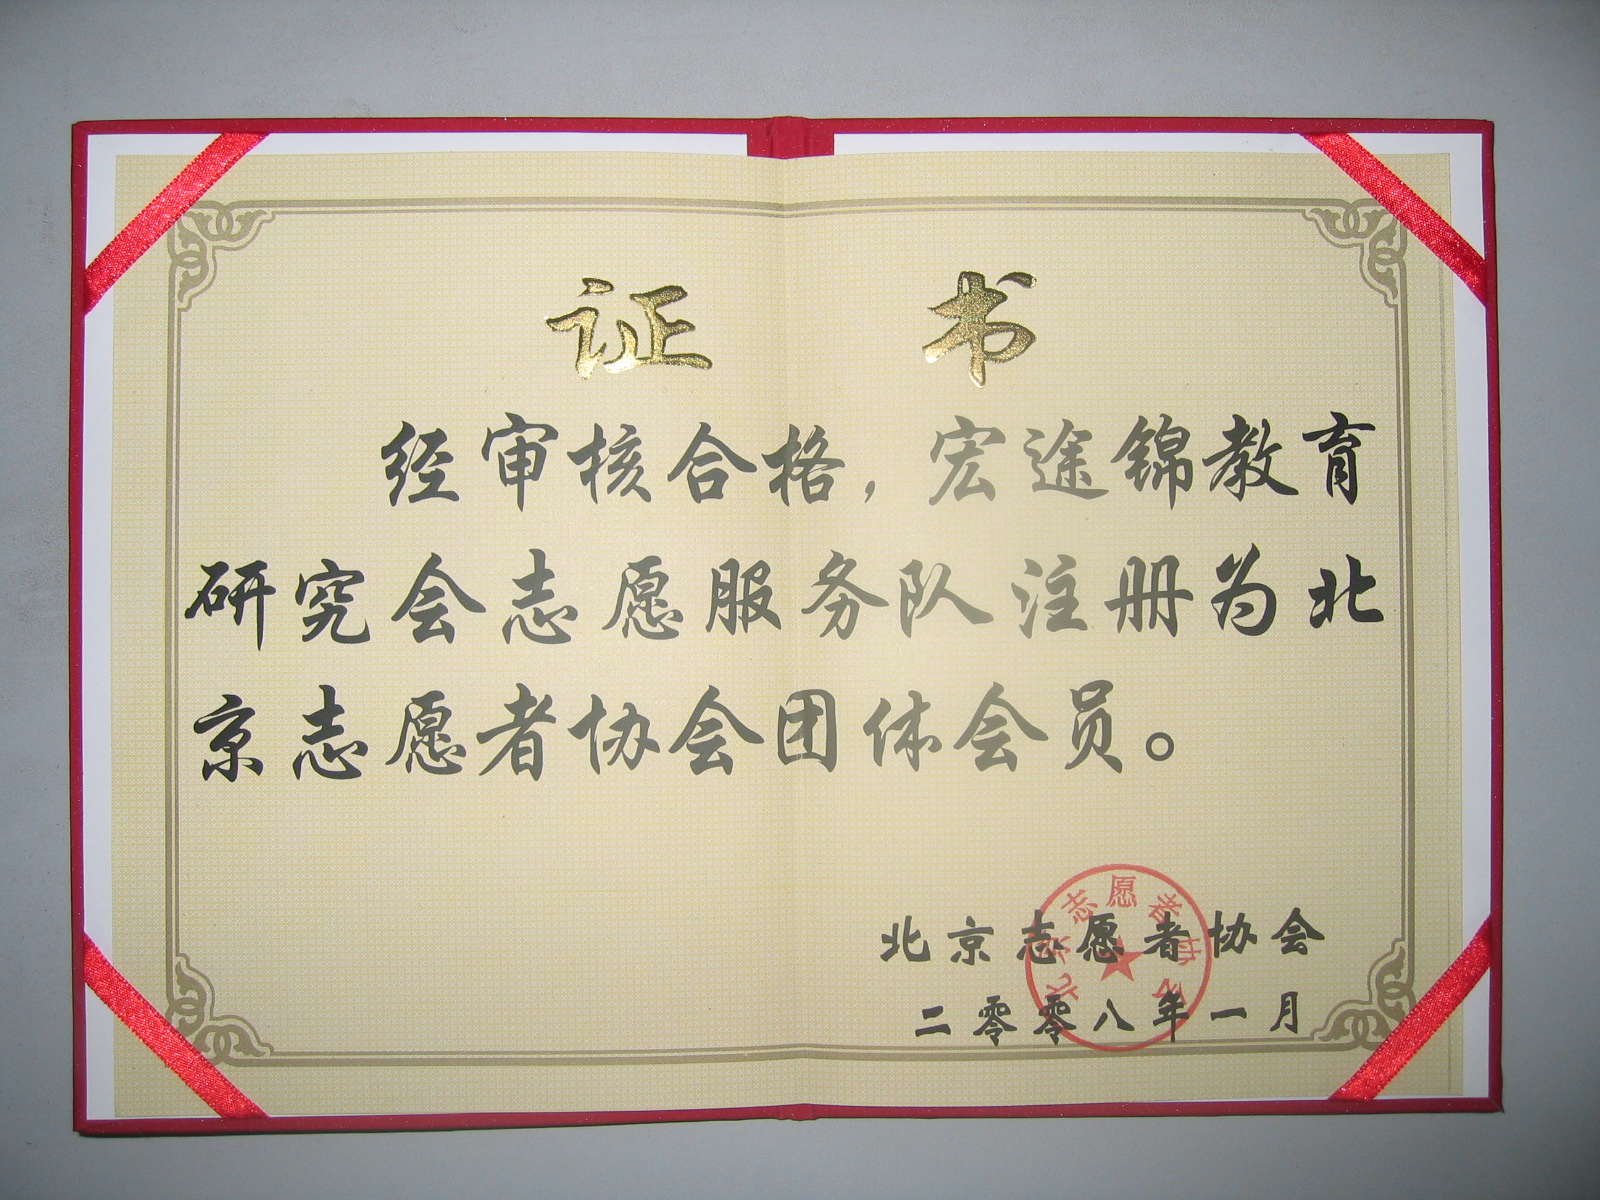 证书
经审核合格，宏途锦教育
研究会志愿服务队注册为北
京志愿者协会团体会员。
北京志愿者协会
二零零八年一月
北京志愿者协会